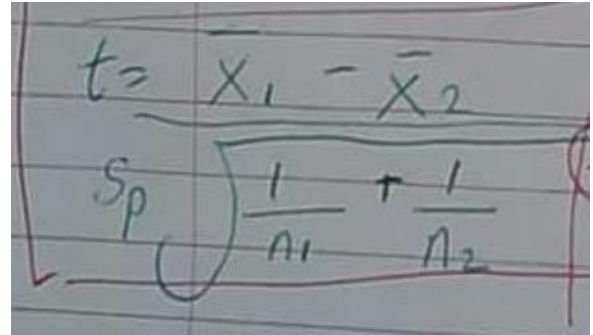 t = X̄₁ - X̄₂
Sₚ √ 1/n₁ + 1/n₂